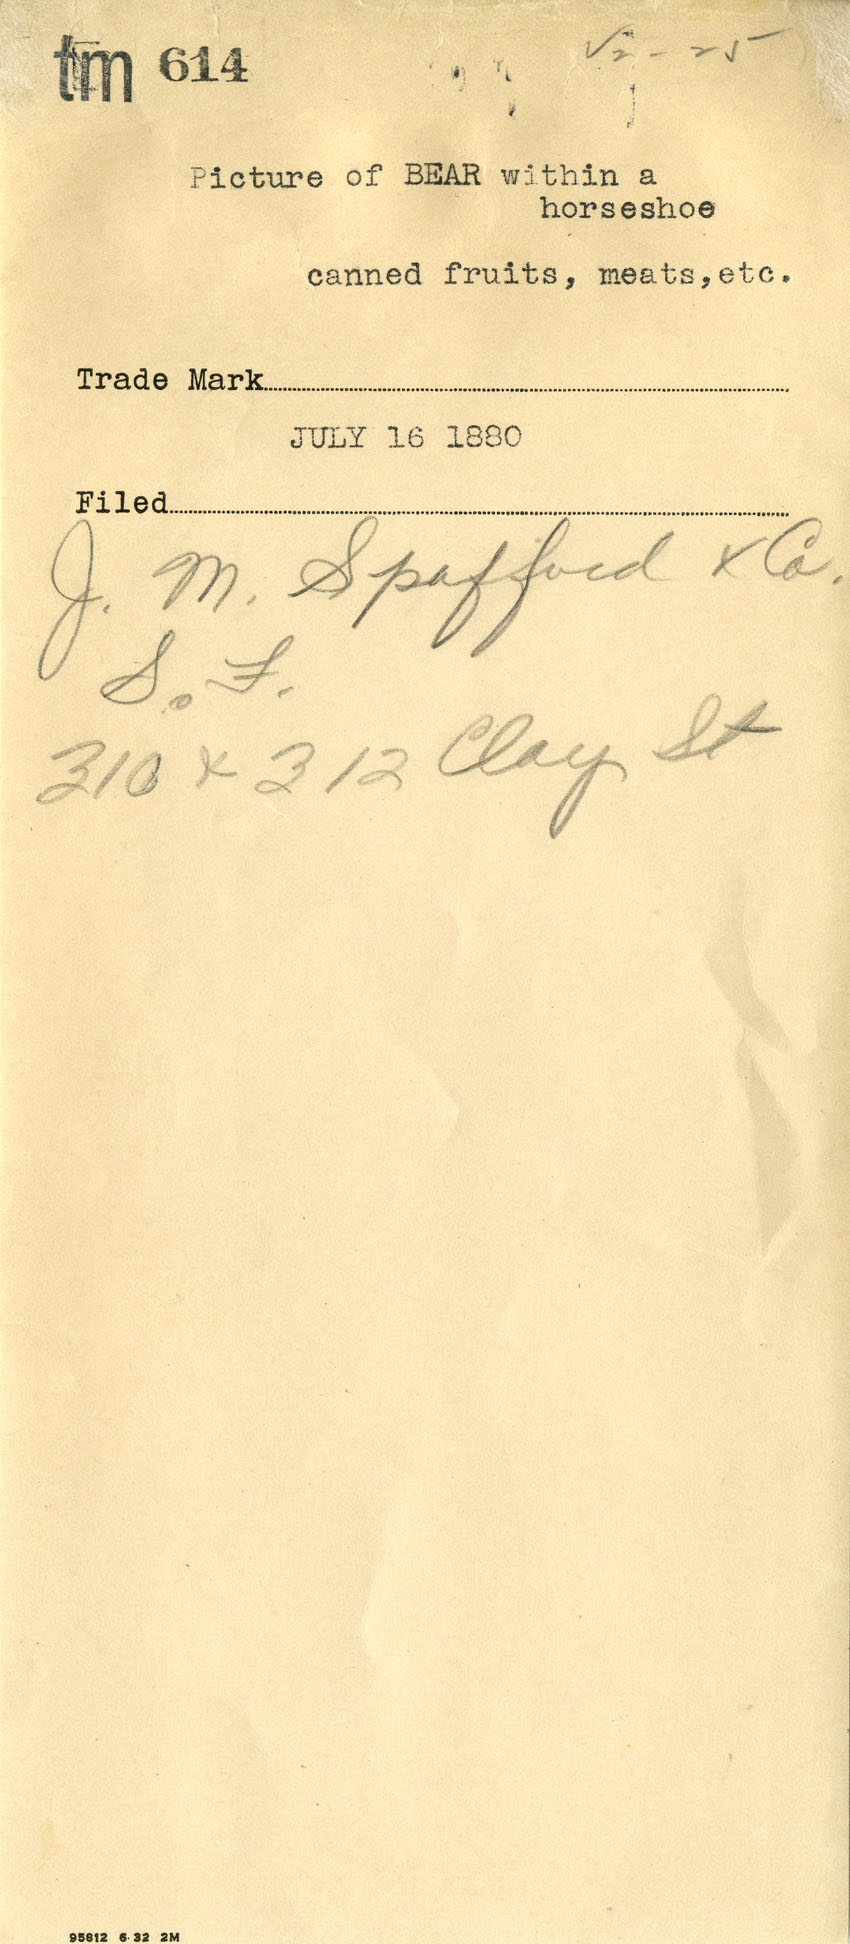 tm 614
√2-25
Picture of BEAR within a
horseshoe
canned fruits, meats,etc.
Trade Mark
JULY 16 1880
Filed
J. M. Spafford & Co.
S. F.
310 & 312 Clay St
95812 6-32 2M